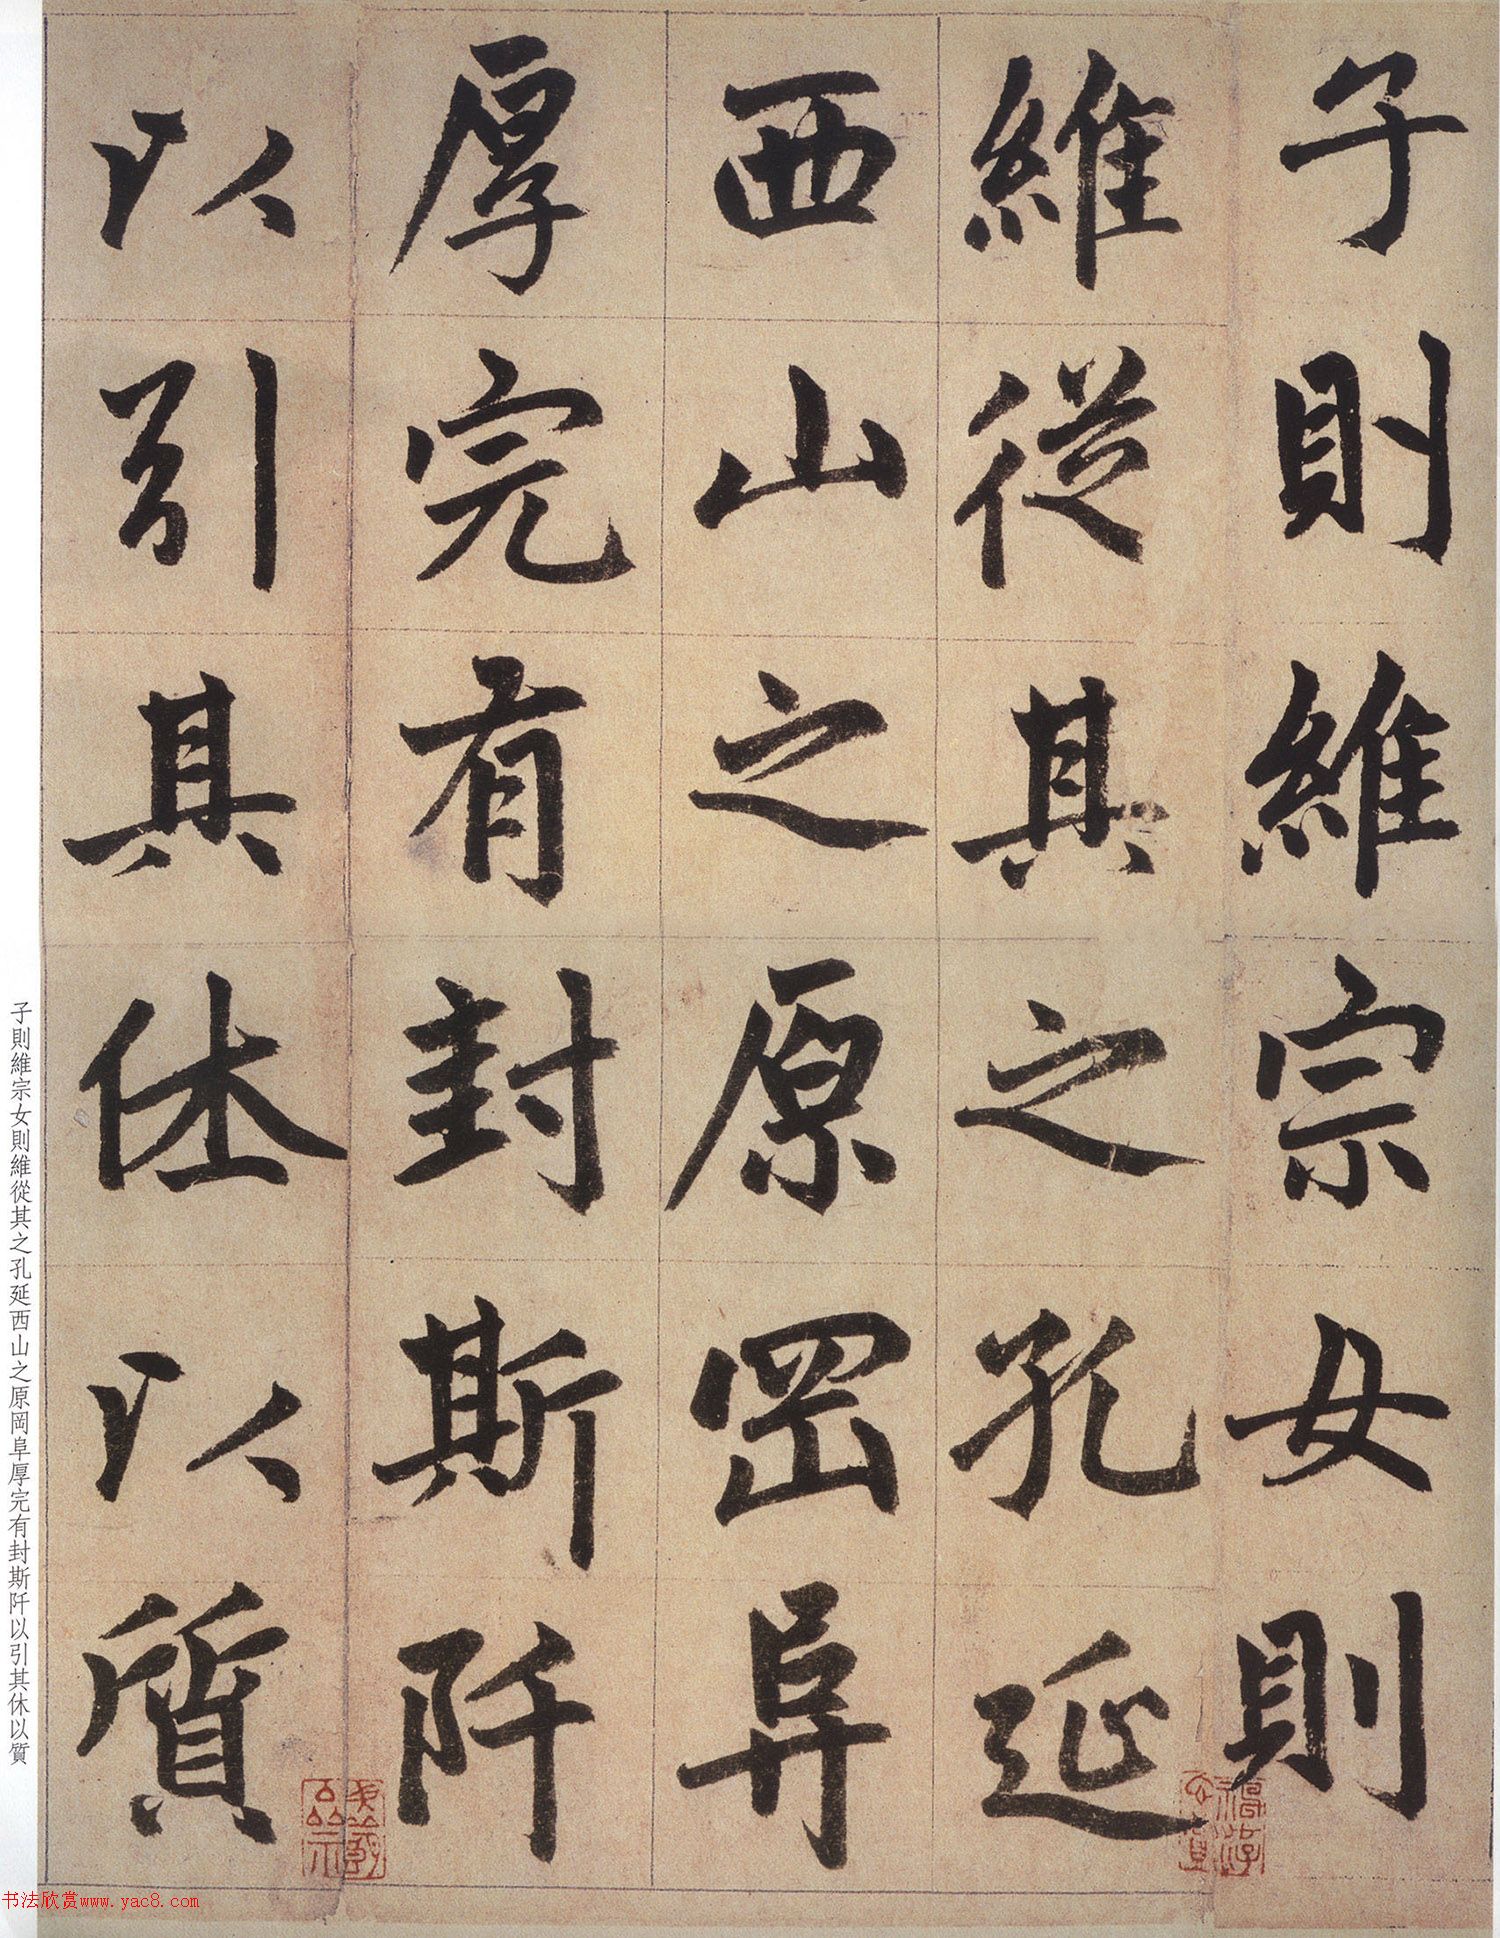 子則維宗女則
維從其之孔延
西山之原罡阜
厚完有封斯阡
以引其休以質
子則維宗女則維從其之孔延西山之原岡阜厚完有封斯阡以引其休以質
书法欣赏www.yac8.com